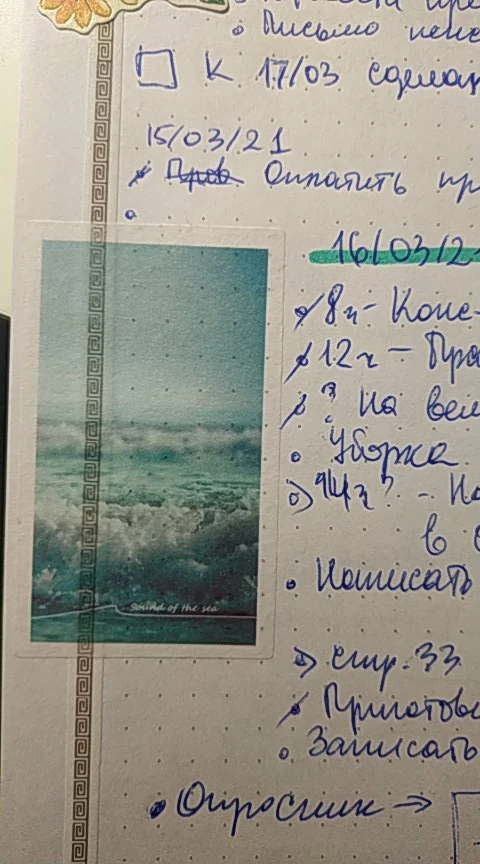 Письмо
К 17/03 сделат
15/03/21
Оплатить пр
16/03/2
8ч - Конс-
12ч - Пра
? На вел
Уборка
14ч? - На
в
Написать
sound of the sea
стр. 33
Приготов
Записать
Опросник →